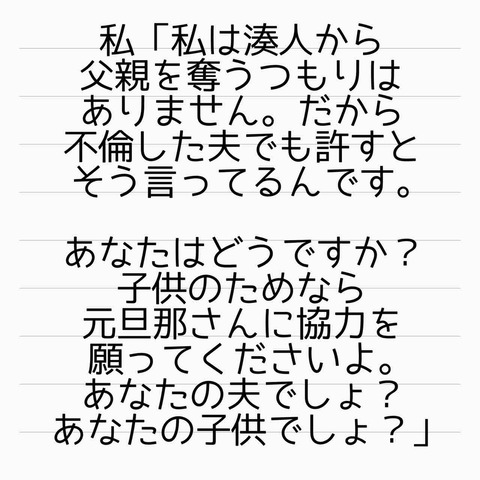 私「私は湊人から
父親を奪うつもりは
ありません。だから
不倫した夫でも許すと
そう言ってるんです。
あなたはどうですか？
子供のためなら
元旦那さんに協力を
願ってくださいよ。
あなたの夫でしょ？
あなたの子供でしょ？」